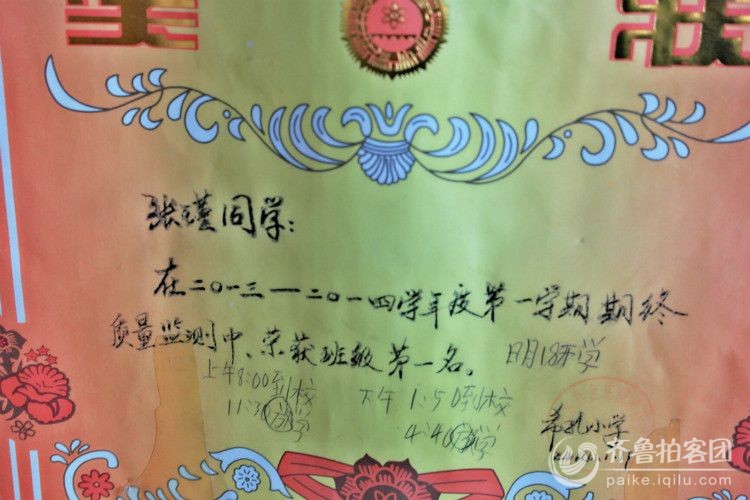 张瑾同学:
在二〇一三—二〇一四学年度第一学期期终
质量监测中,荣获班级第一名。
明18开学
上午8:00到校
下午1:50到校
11:30放学
4:40放学
小学
齐鲁拍客团
paike.iqilu.com